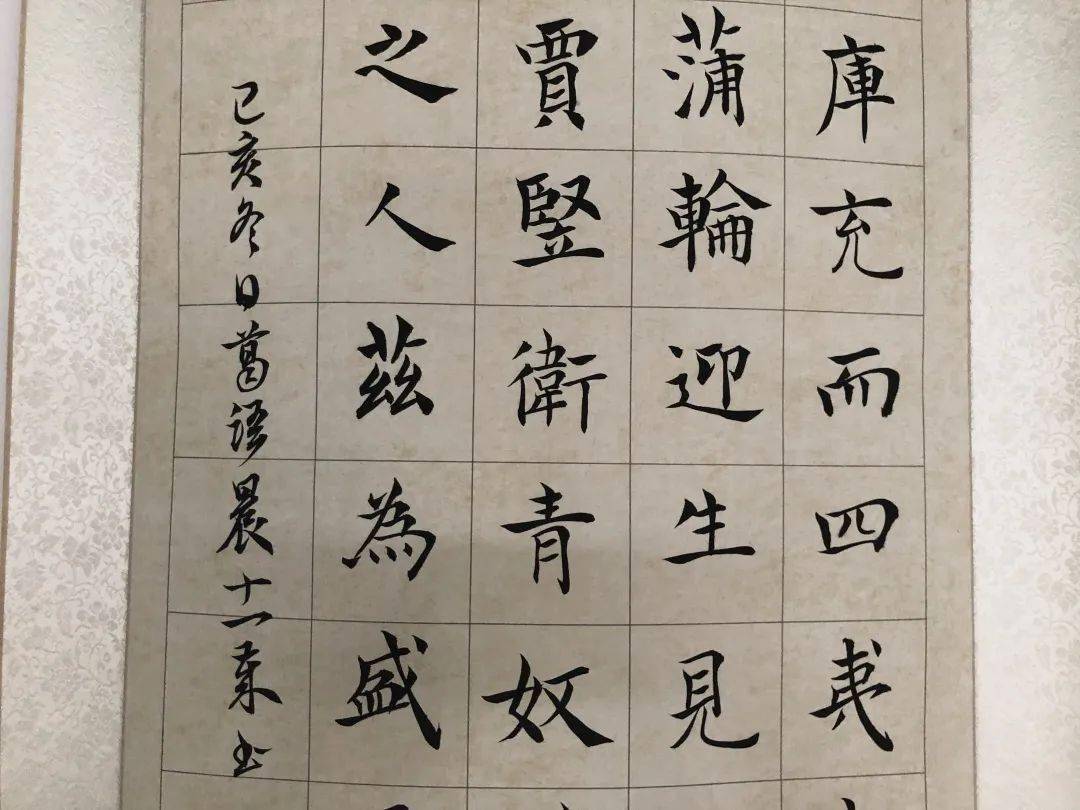 庫充而四夷
蒲輪迎生見
賈豎衛青奴
之人茲為盛
己亥冬日葛语晨十一歲书